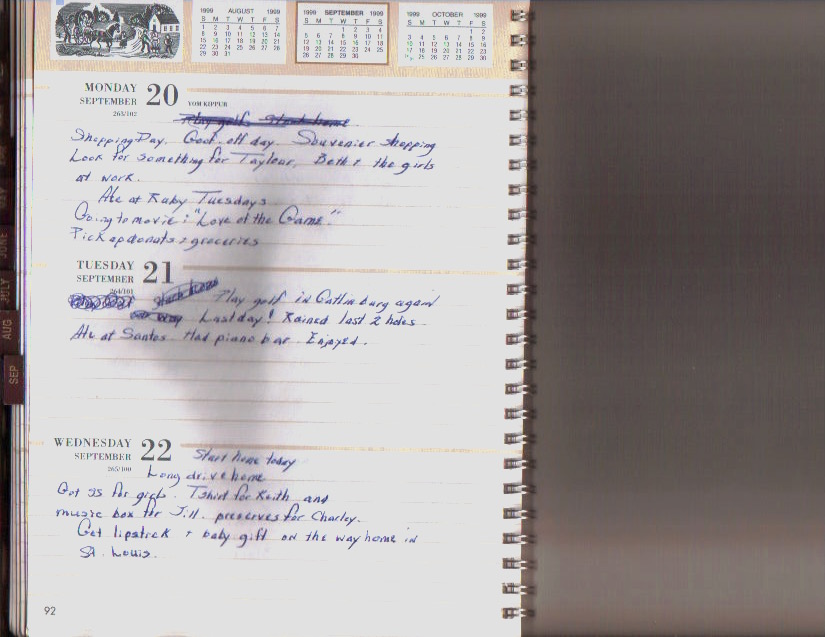 1999 AUGUST 1999
S M T W T F S
1 2 3 4 5 6 7
8 9 10 11 12 13 14
15 16 17 18 19 20 21
22 23 24 25 26 27 28
29 30 31
1999 SEPTEMBER 1999
S M T W T F S
1 2 3 4
5 6 7 8 9 10 11
12 13 14 15 16 17 18
19 20 21 22 23 24 25
26 27 28 29 30
1999 OCTOBER 1999
S M T W T F S
1 2
3 4 5 6 7 8 9
10 11 12 13 14 15 16
17 18 19 20 21 22 23
25 26 27 28 29 30
MONDAY 20
SEPTEMBER
263/102
YOM KIPPUR
Play golf Start home
Shopping Day. Good off day. Souvenier shopping
Look for something for Taylour, Beth & the girls
at work.
Ate at Ruby Tuesdays
Going to movie: "Love of the Game."
Pick up donats & groceries
TUESDAY 21
SEPTEMBER
264/101
Start home Play golf in Gatlinburg again
Last day! Rained last 2 holes.
Ate at Santos. Had piano bar. Enjoyed.
WEDNESDAY 22
SEPTEMBER
265/100
Start home today
Long drive home
Got for girls. Tshirt for Keith and
music box for Jill. preserves for Charley.
Get lipstick + baby gift on the way home in
St. Louis.
92
JUNE
JULY
AUG
SEP